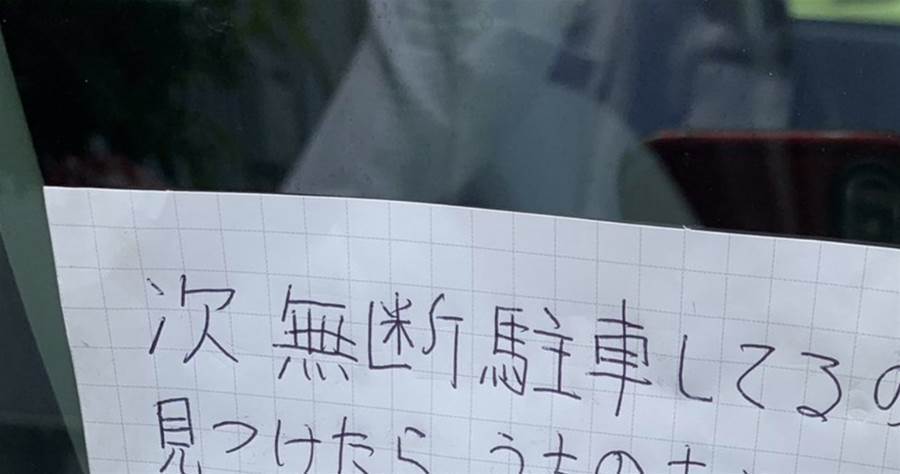 次 無断駐車してるの
見つけたら うちの